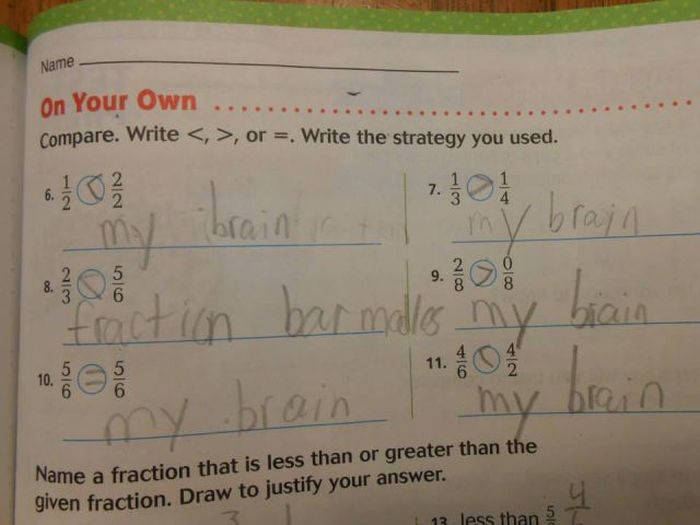 Name
On Your Own
Compare. Write <, >, or =. Write the strategy you used.
6. 1/2 < 2/2
my brain
7. 1/3 > 1/4
my brain
8. 2/3 < 5/6
fraction bar madles
9. 2/8 > 0/8
my brain
10. 5/6 = 5/6
my brain
11. 4/6 < 4/2
my brain
Name a fraction that is less than or greater than the
given fraction. Draw to justify your answer.
13. less than 5 4